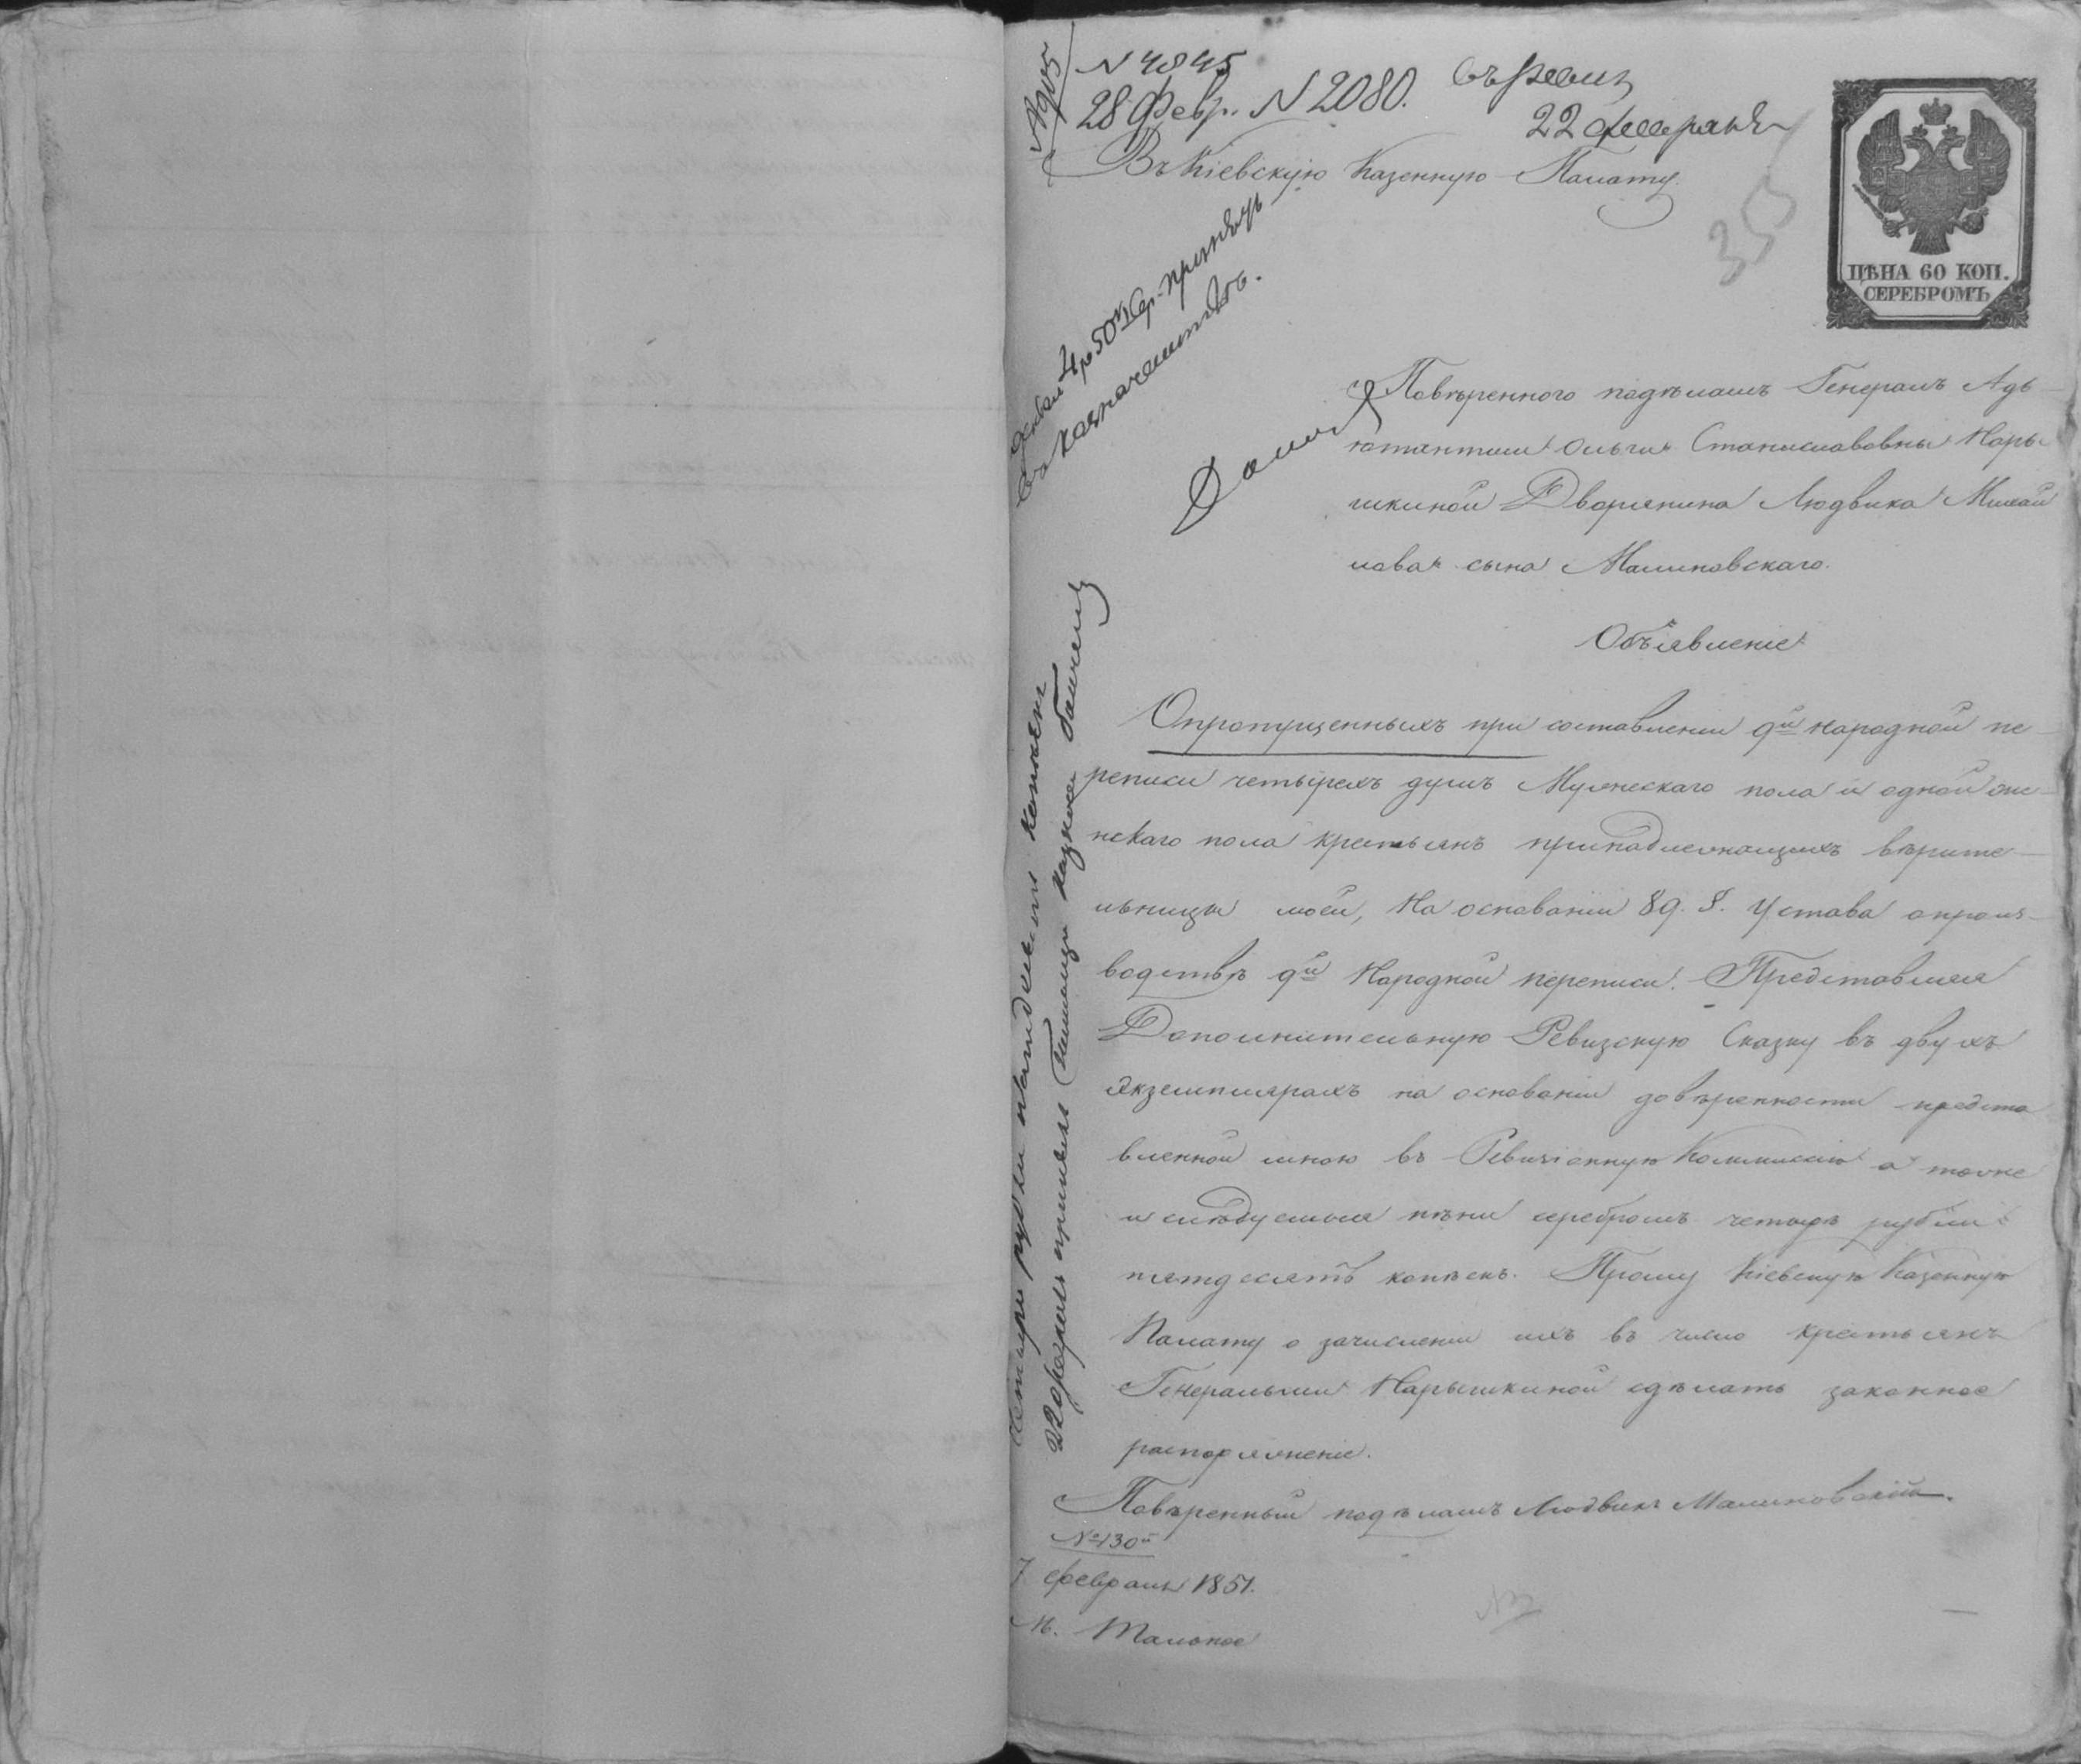 N 4845
28 Февр. N 2080.
22 Февраля
Въ Кіевскую Казенную Палату
ЦѢНА 60 КОП.
СЕРЕБРОМЪ
35
4 р 50 к сер. принять
въ казначейство.
Повѣренного подѣламъ Генералъ Адъ
ютантши Ольги Станиславовны Нары
шкиной Дворянина Людвика Михай
лова сына Малиновскаго.
Объявленіе
Опропущенныхъ при составленіи 9й народной пе
реписи четырехъ душъ Мужескаго пола и одной же
нскаго пола крестьянъ принадлежащихъ вѣрите
льницы моей, На основаніи 89. §. Устава опроиз
водствѣ 9й Народной переписи. Представляя
Дополнительную Ревизскую Сказку въ двухъ
Экземплярахъ на основаніи довѣренности предста
вленной мною въ Ревизіонную Коммисію а тоже
и слѣдуемыя пѣни серебромъ четырѣ рубли
пятдесятъ копѣекъ. Прошу Кіевскую Казенную
Палату о зачисленіи ихъ въ число крестьянъ
Генеральши Нарышкиной сдѣлать законное
распоряженіе.
Повѣренный подѣламъ Людвикъ Малиновскій.
№ 130й
7 февраля 1851.
М. Тальное
Четыри рубли пятдесятъ копѣекъ